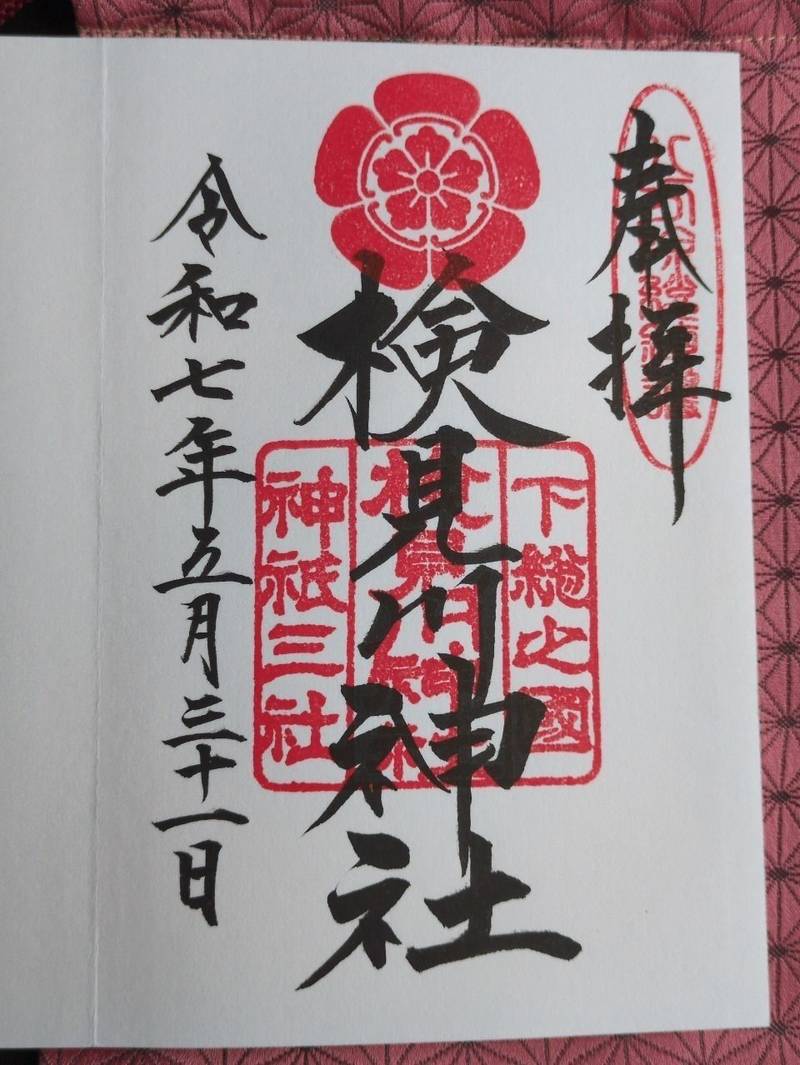 奉拝
検見川神社
下総之國
検見川神社
神祇三社
令和七年五月三十一日